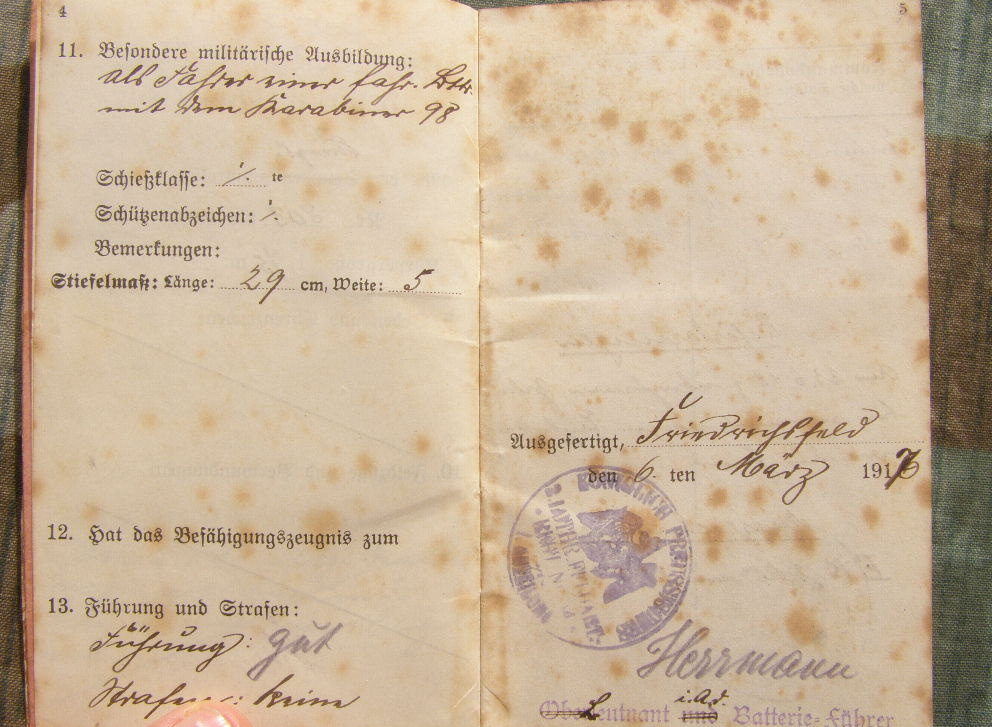 4
11. Besondere militärische Ausbildung:
als Fahrer einer fahr. Bttr.
mit dem Karabiner 98
Schießklasse: ./. te
Schützenabzeichen: ./.
Bemerkungen:
Stiefelmaß: Länge: 29 cm, Weite: 5
12. Hat das Befähigungszeugnis zum
13. Führung und Strafen:
Führung: gut
Strafen: keine
5
Ausgefertigt, Friedrichsfeld
den 6. ten März 191
Herrmann
Oberleutnant und i.Ad. Batterie=Führer